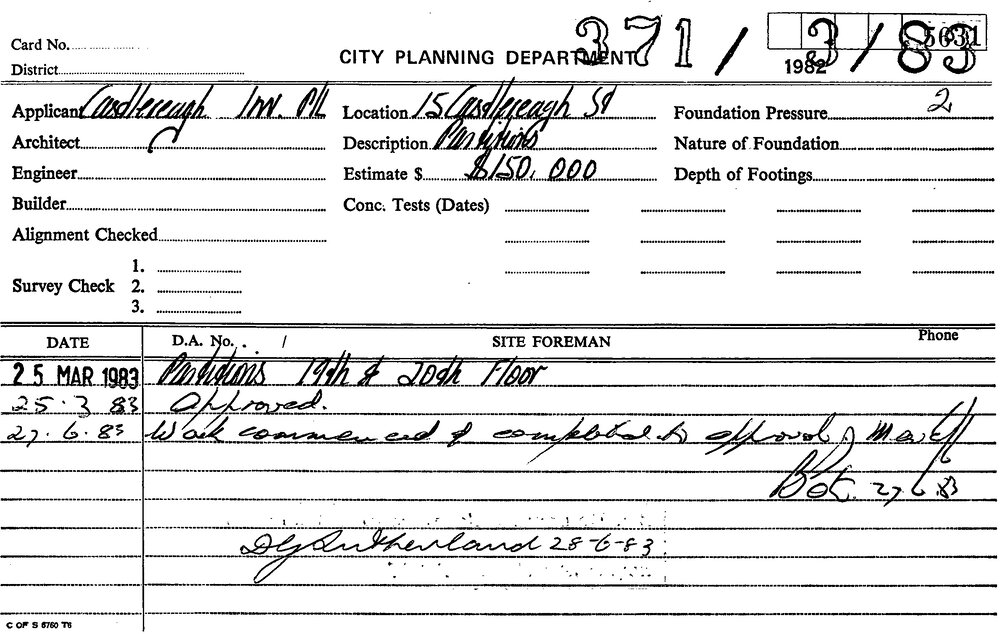 371/3/83
5031
Card No.
CITY PLANNING DEPARTMENT
1982
District
Applicant Castlereagh Inv. P/L Location 15 Castlereagh St Foundation Pressure 2
Architect Description Partitions Nature of Foundation
Engineer Estimate $ $150,000 Depth of Footings
Builder Conc. Tests (Dates)
Alignment Checked
1.
Survey Check 2.
3.
DATE D.A. No. / SITE FOREMAN Phone
25 MAR 1983 Partitions 19th & 20th Floor
25.3.83 Approved.
27.6.83 Work commenced & completed to approval
27.6.83
DG Sutherland 28-6-83
C OF S 6760 T6